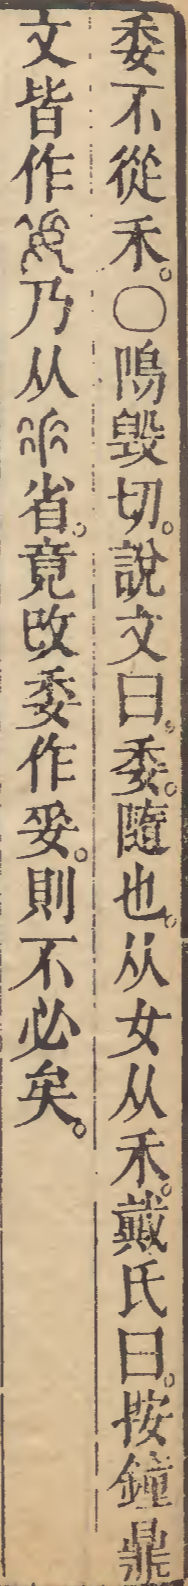 委不從禾。○隖毀切。說文曰。委。隨也。从女从禾。戴氏曰。按鐘鼎
文皆作乃从省。竟改委作妥。則不必矣。